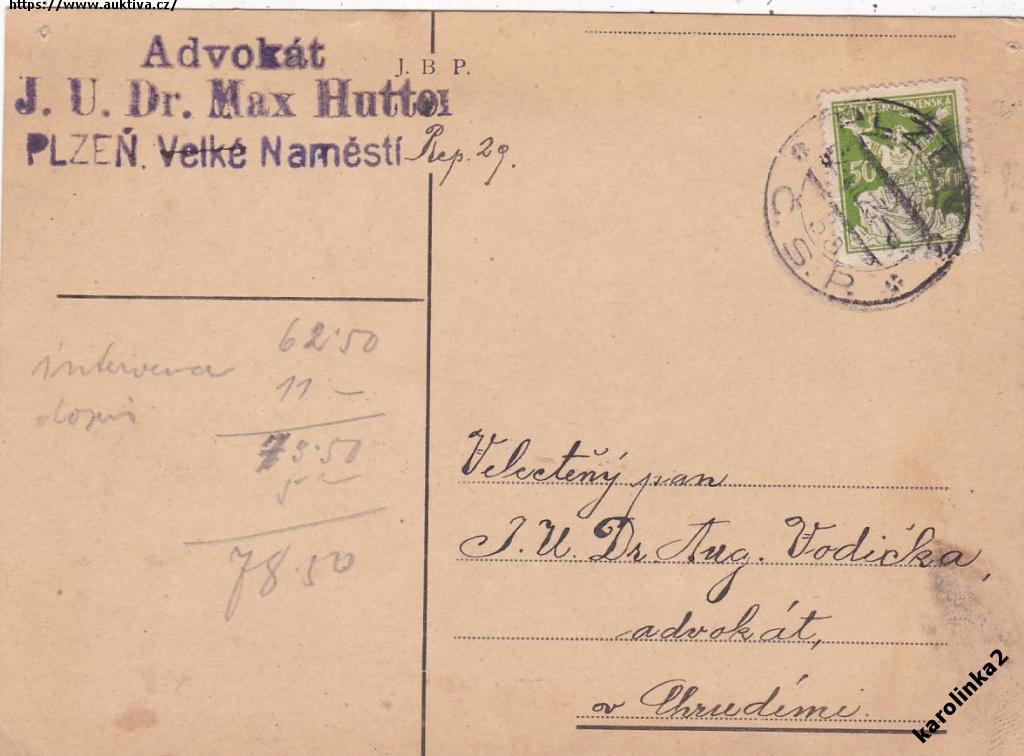 https://www.auktiva.cz/
Advokát
J. B P.
J. U. Dr. Max Hutter
PLZEŇ. Velké Naměstí Rep. 29.
ČESKOSLOVENSKÁ
50
PLZEŇ
Č. S. P.
62·50
intervence
11 –
dopis
73·50
5 –
78 50
Velectěný pan
J. U. Dr. Aug. Vodička,
advokát,
v Chrudimi.
karolinka2